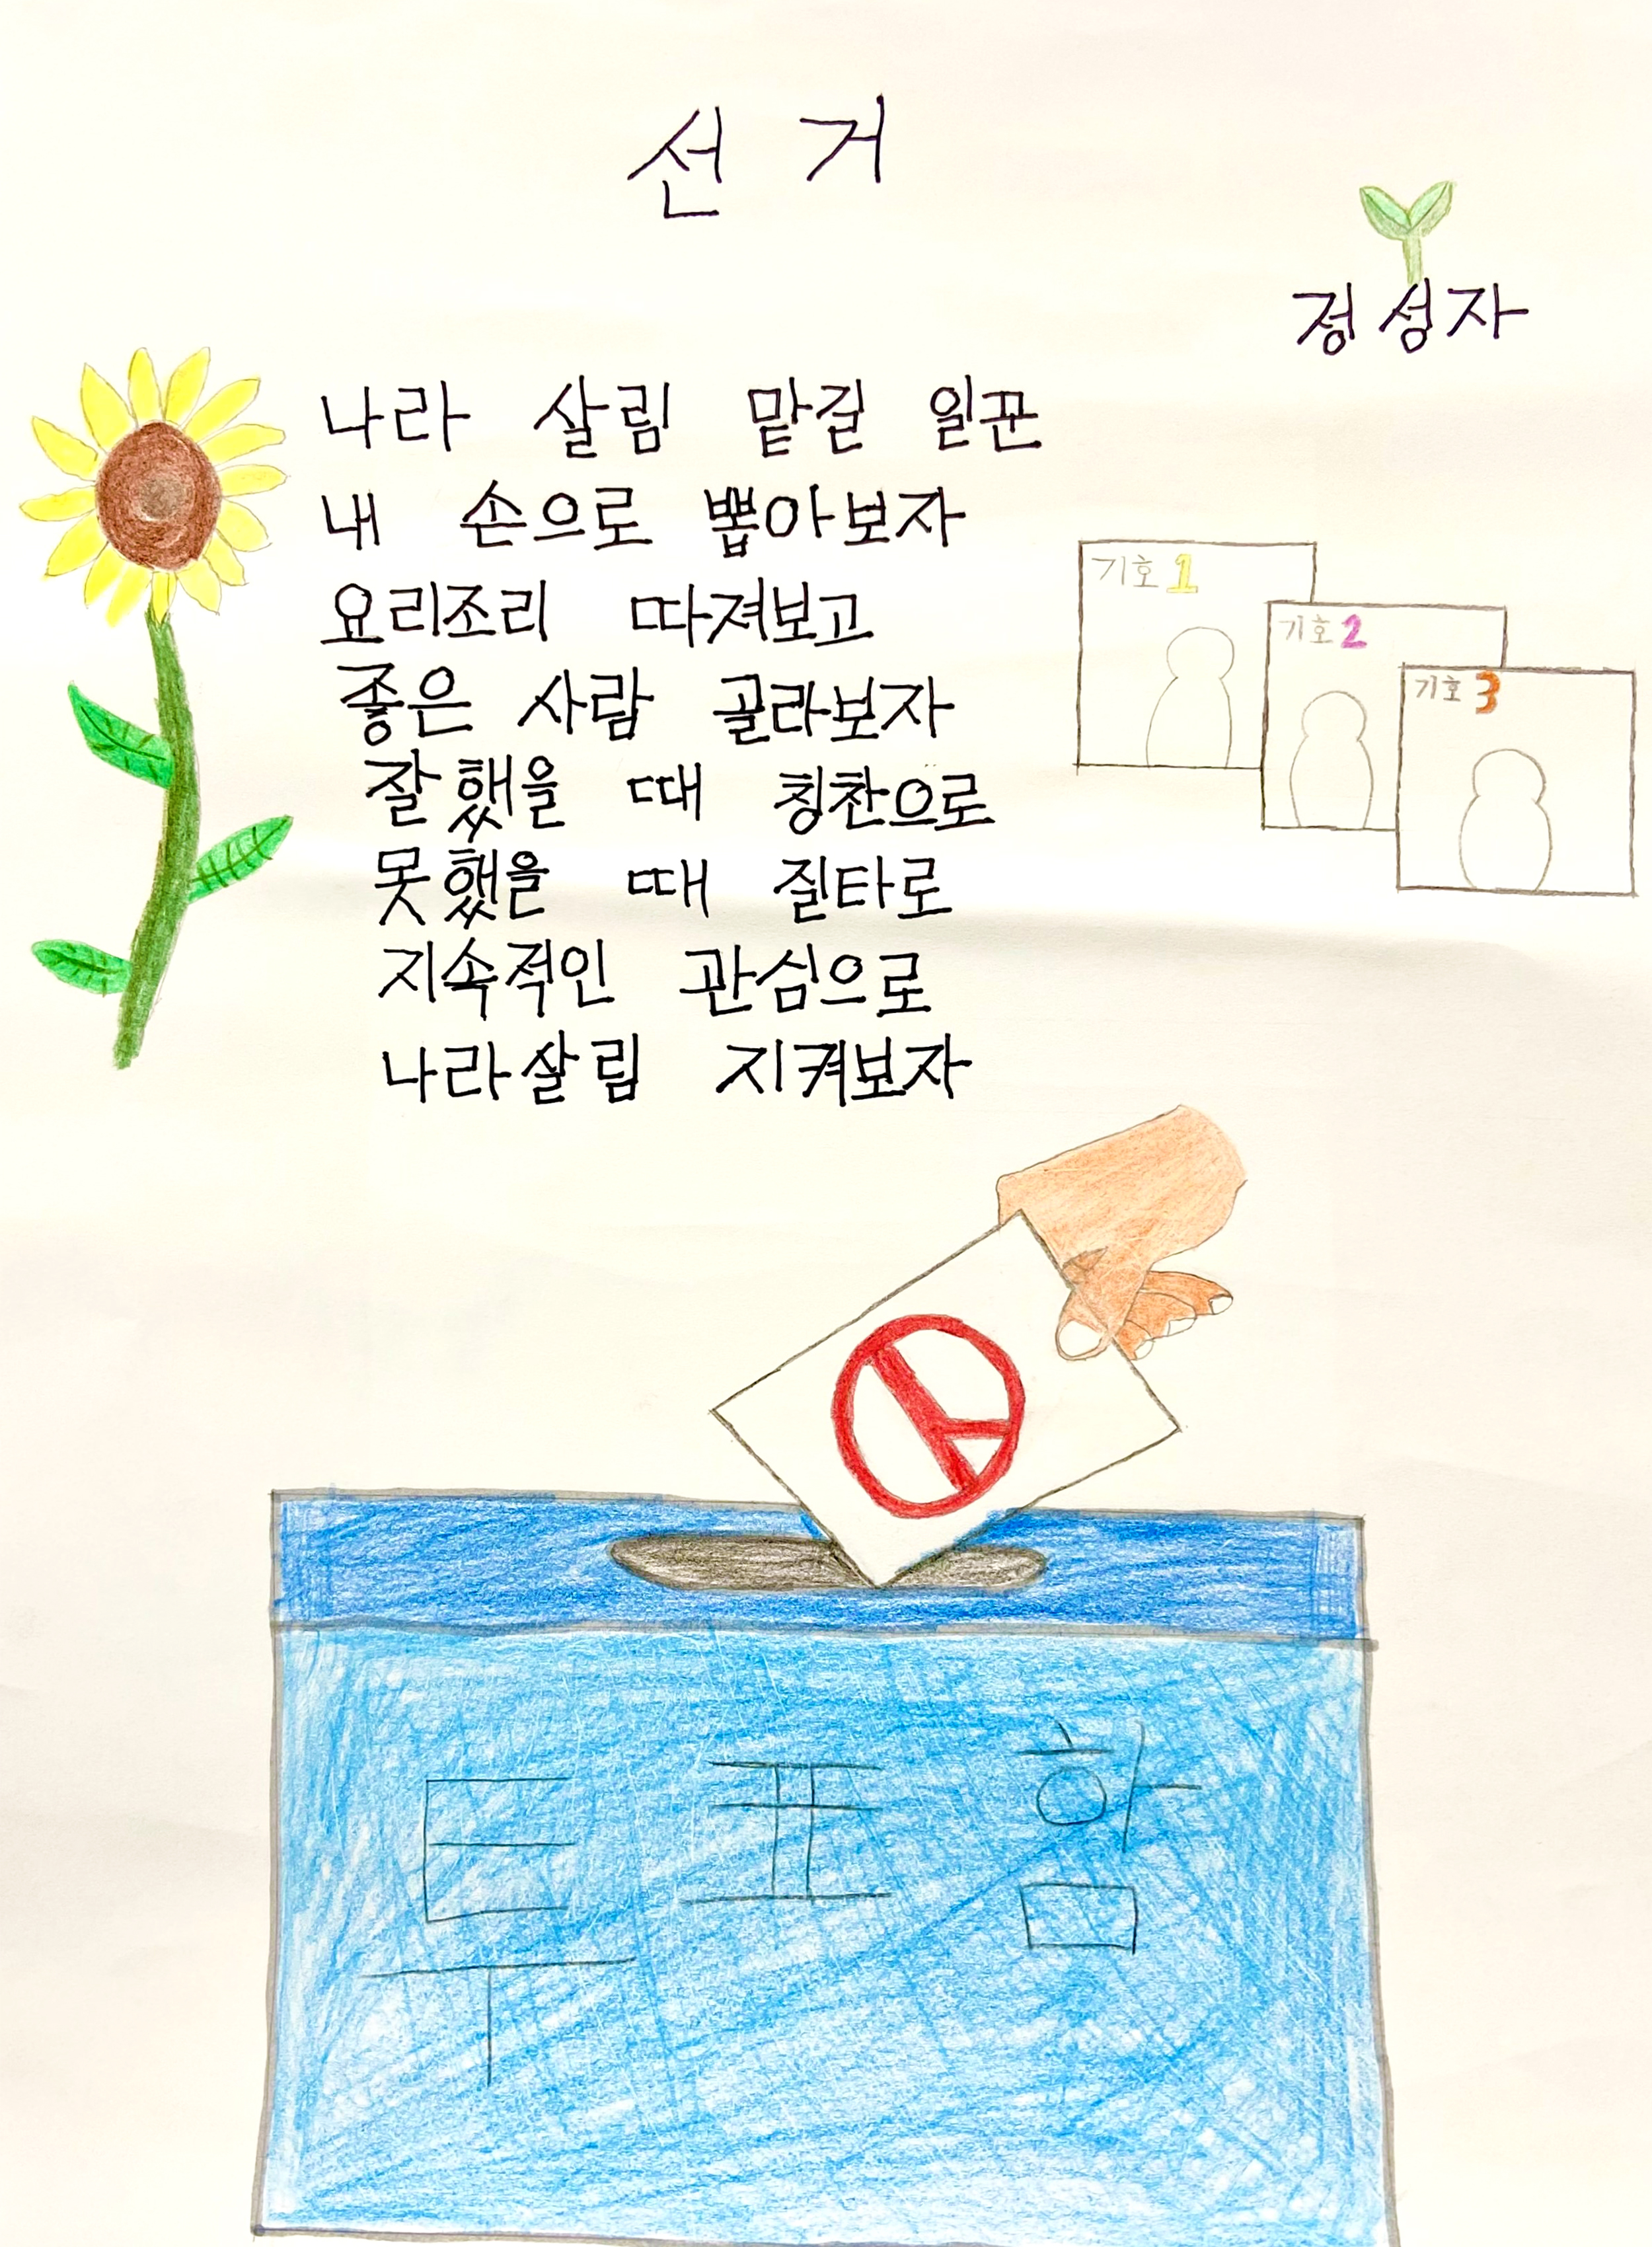 선 거
정성자
나라 살림 맡길 일꾼
내 손으로 뽑아보자
요리조리 따져보고
좋은 사람 골라보자
잘했을 때 칭찬으로
못했을 때 질타로
지속적인 관심으로
나라살림 지켜보자
기호1
기호2
기호3
투표함